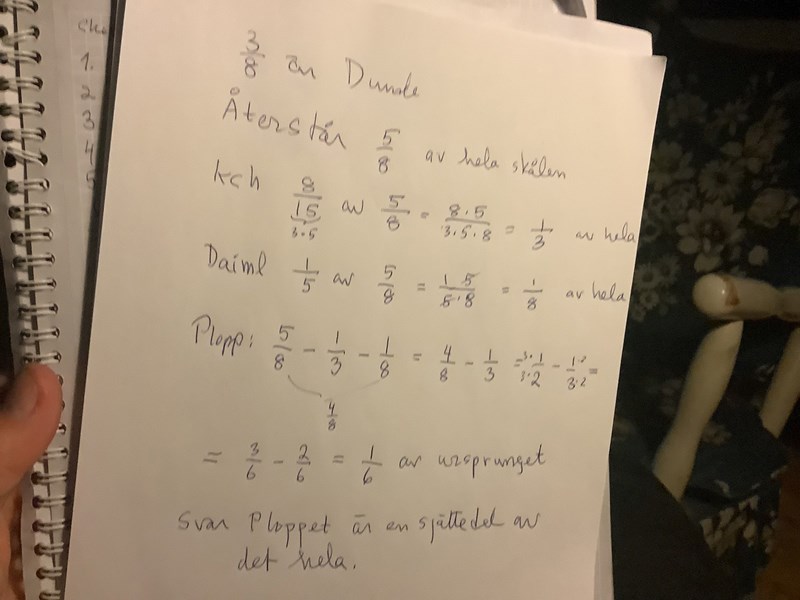 3/8 är Dumle
Återstår 5/8 av hela skålen
kch 8/15 av 5/8 = 8·5/3·5·8 = 1/3 av hela
3·5
Daiml 1/5 av 5/8 = 1·5/5·8 = 1/8 av hela
Plopp: 5/8 - 1/3 - 1/8 = 4/8 - 1/3 = 3·1/3·2 - 1·2/3·2 =
4/8
= 3/6 - 2/6 = 1/6 av ursprunget
Svar Ploppet är en sjättedel av
det hela.
1.
2
3
4
5